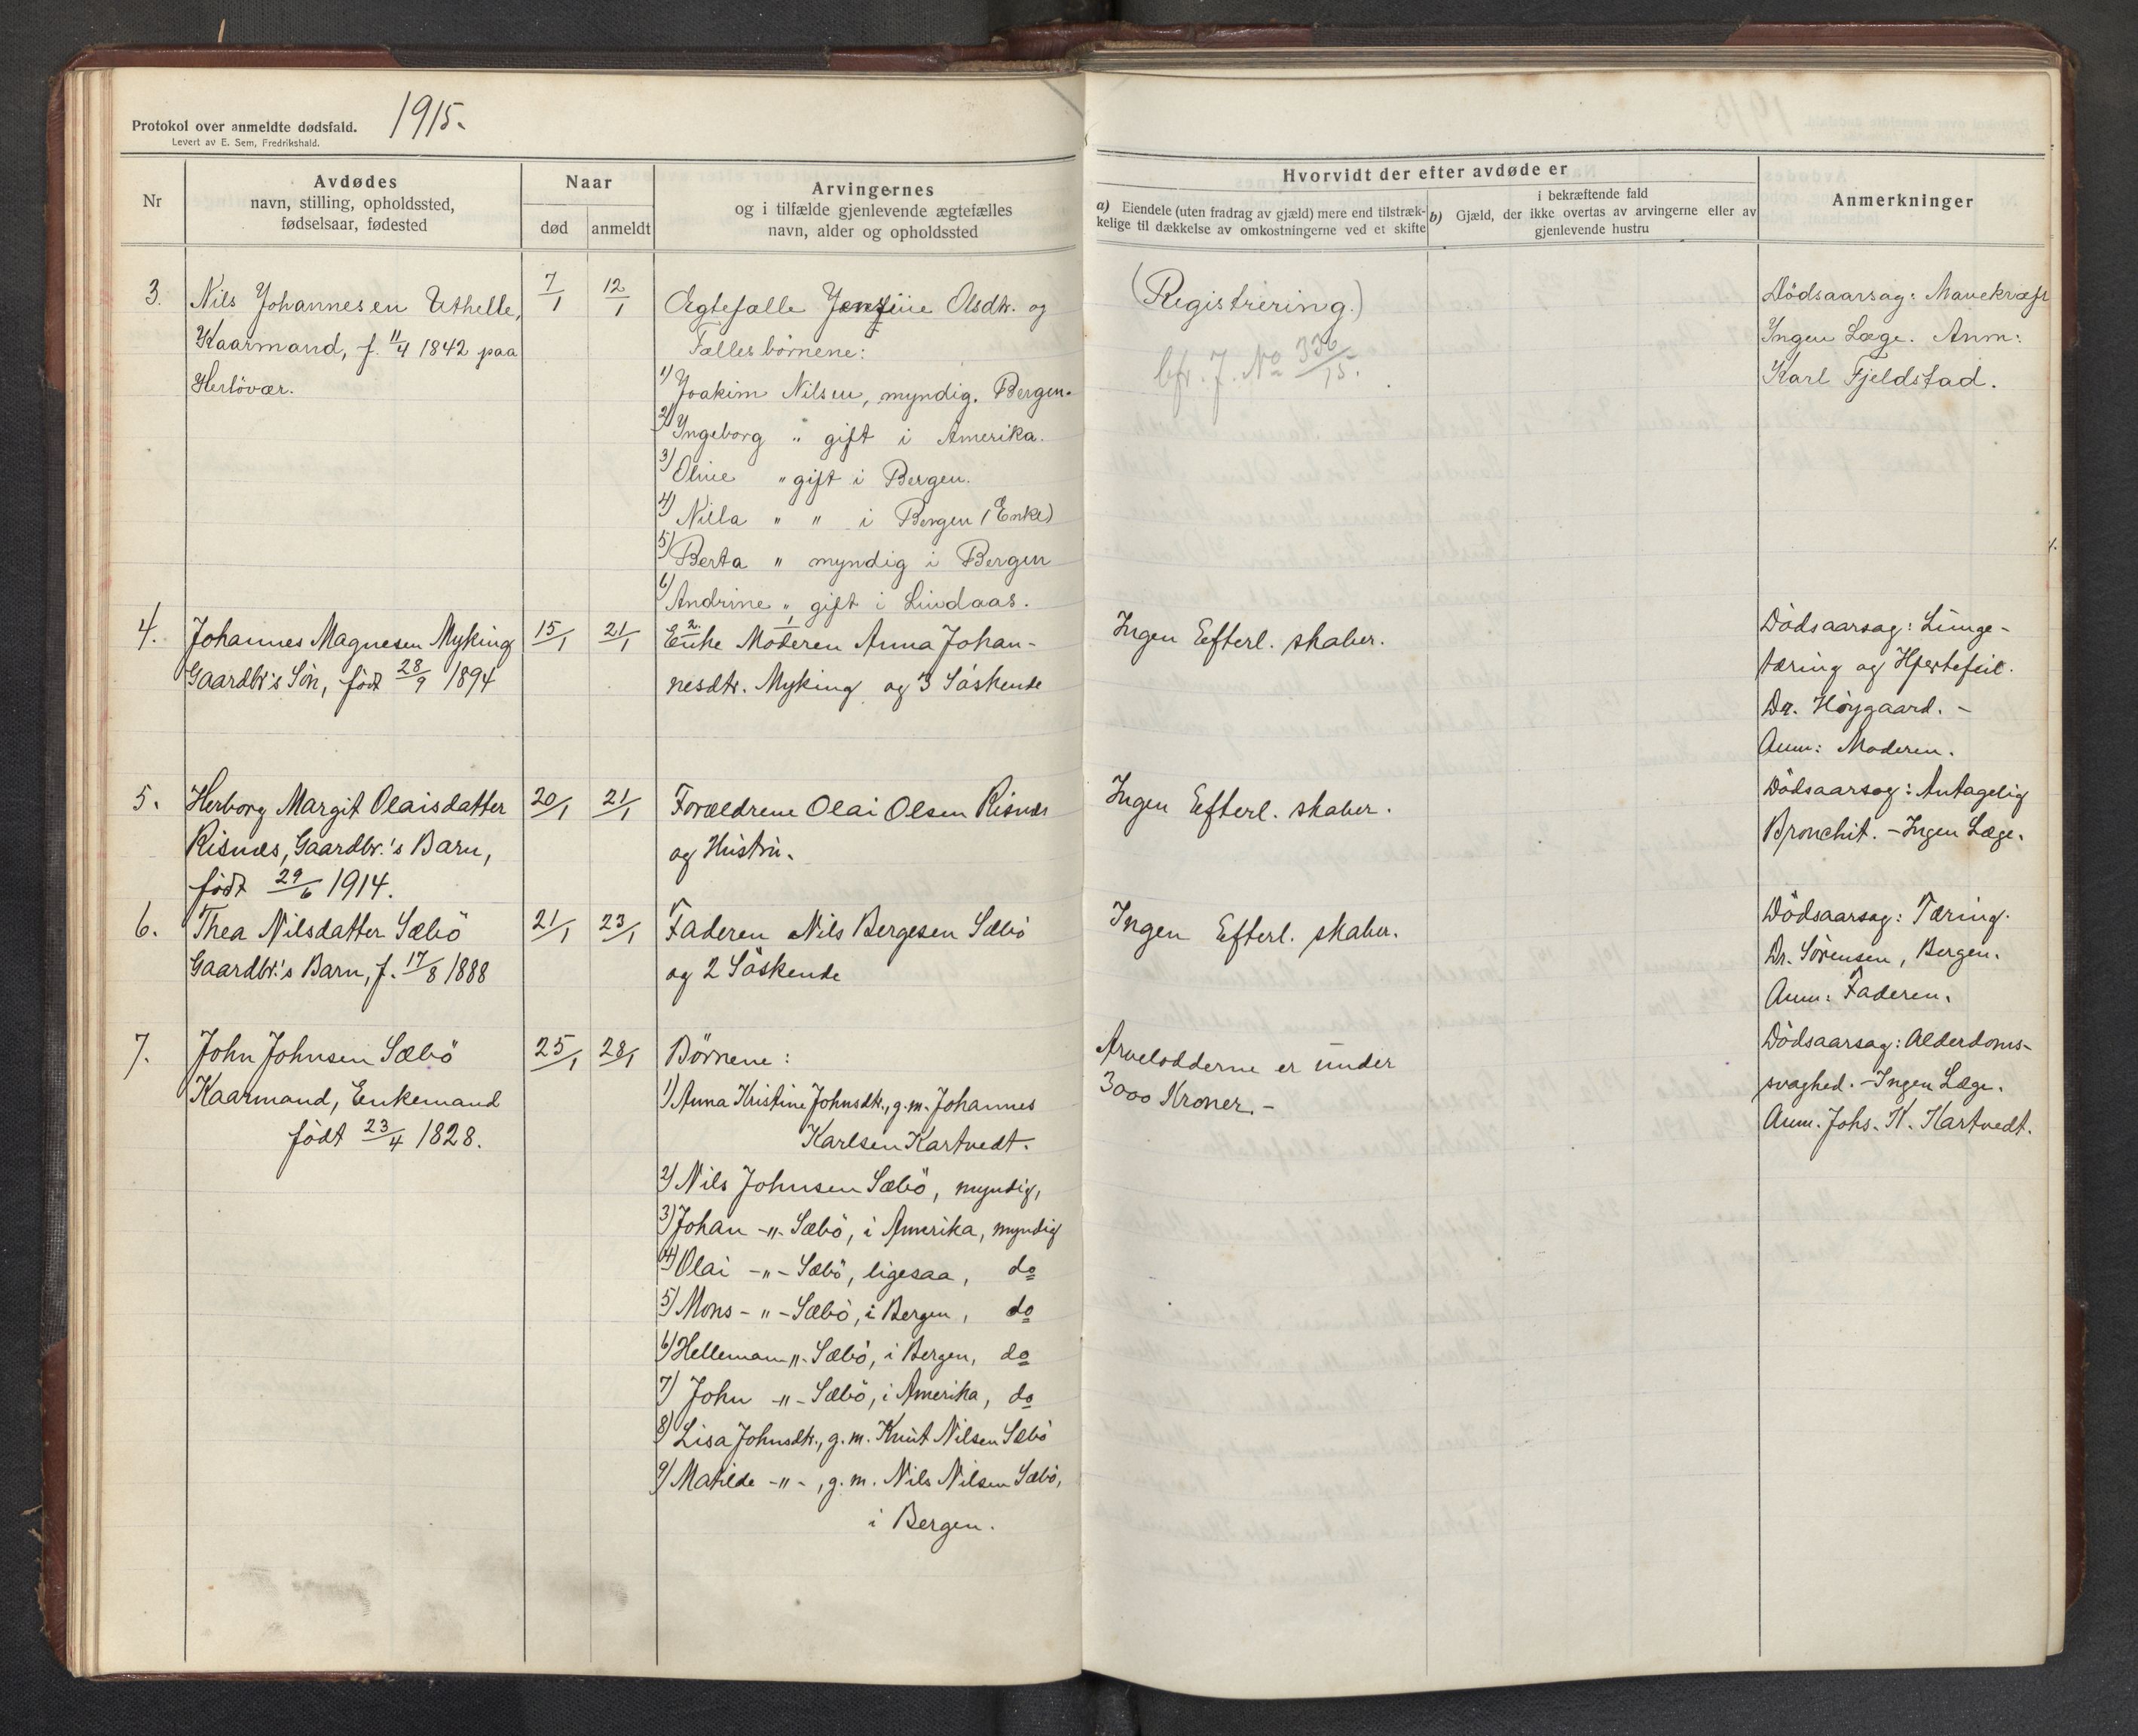 Protokol over anmeldte dødsfald. 1915.
Levert av E. Sem, Fredrikshald.
Nr
Avdødes
navn, stilling, opholdssted,
fødselsaar, fødested
Naar
død
anmeldt
Arvingernes
og i tilfælde gjenlevende ægtefælles
navn, alder og opholdssted
Hvorvidt der efter avdøde er
a) Eiendele (uten fradrag av gjæld) mere end tilstræk-
kelige til dækkelse av omkostningerne ved et skifte
i bekræftende fald
b) Gjæld, der ikke overtas av arvingerne eller av
gjenlevende hustru
Anmerkninger
3.
Nils Johannesen Uthelle,
Kaarmand, f. 11/4 1842 paa
Herlövær.
7/1
12/1
Ægtefælle Jensine Olsdtr. og
Fællesbörnene:
1) Joakim Nilsen, myndig. Bergen.
2) Ingeborg " gift i Amerika.
3) Oline " gift i Bergen.
4) Nilla " " i Bergen (Enke)
5) Berta " myndig i Bergen
6) Andrine " gift i Lindaas.
(Registrering.)
cfr. J. No 336/15.
Dödsaarsag: Mavekræft
Ingen Læge. Anm:
Karl Fjeldstad.
4.
Johannes Magnesen Myking
Gaardbr's Sön, födt 28/9 1894
15/1
21/1
2. 1
Enke Moderen Anna Johan-
nesdtr. Myking og 3 Söskende
Ingen Efterl. skaber.
Dödsaarsag: Lunge-
tæring og Hjertefeil.
Dr. Höygaard. -
Anm: Moderen.
5.
Herborg Margit Olaisdatter
Risnes, Gaardbr.'s Barn,
födt 29/6 1914.
20/1
21/1
Forældrene Olai Olsen Risnes
og Hustru.
Ingen Efterl. skaber.
Dödsaarsag: Antagelig
Bronchit. - Ingen Læge.
6.
Thea Nilsdatter Sæbö
Gaardbr.'s Barn, f. 17/8 1888
21/1
23/1
Faderen Nils Bergesen Sæbö
og 2 Söskende
Ingen Efterl. skaber.
Dödsaarsag: Tæring.
Dr. Sörensen, Bergen.
Anm: Faderen.
7.
John Johnsen Sæbö
Kaarmand, Enkemand
födt 23/4 1828.
25/1
28/1
Börnene:
1) Anna Kristine Johnsdtr., g.m. Johannes
Karlsen Kartvedt.
2) Nils Johnsen Sæbö, myndig,
3) Johan -"- Sæbö, i Amerika, myndig
4) Olai -"- Sæbö, ligesaa, do
5) Mons -"- Sæbö, i Bergen, do
6) Hellemann -"- Sæbö, i Bergen, do
7) John -"- Sæbö, i Amerika, do
8) Lisa Johnsdtr., g.m. Knut Nilsen Sæbö
9) Matilde -"-, g.m. Nils Nilsen Sæbö,
i Bergen.
Arvelodderne er under
3000 Kroner. -
Dödsaarsag: Alderdoms-
svaghed. - Ingen Læge.
Anm. Johs. K. Kartvedt.